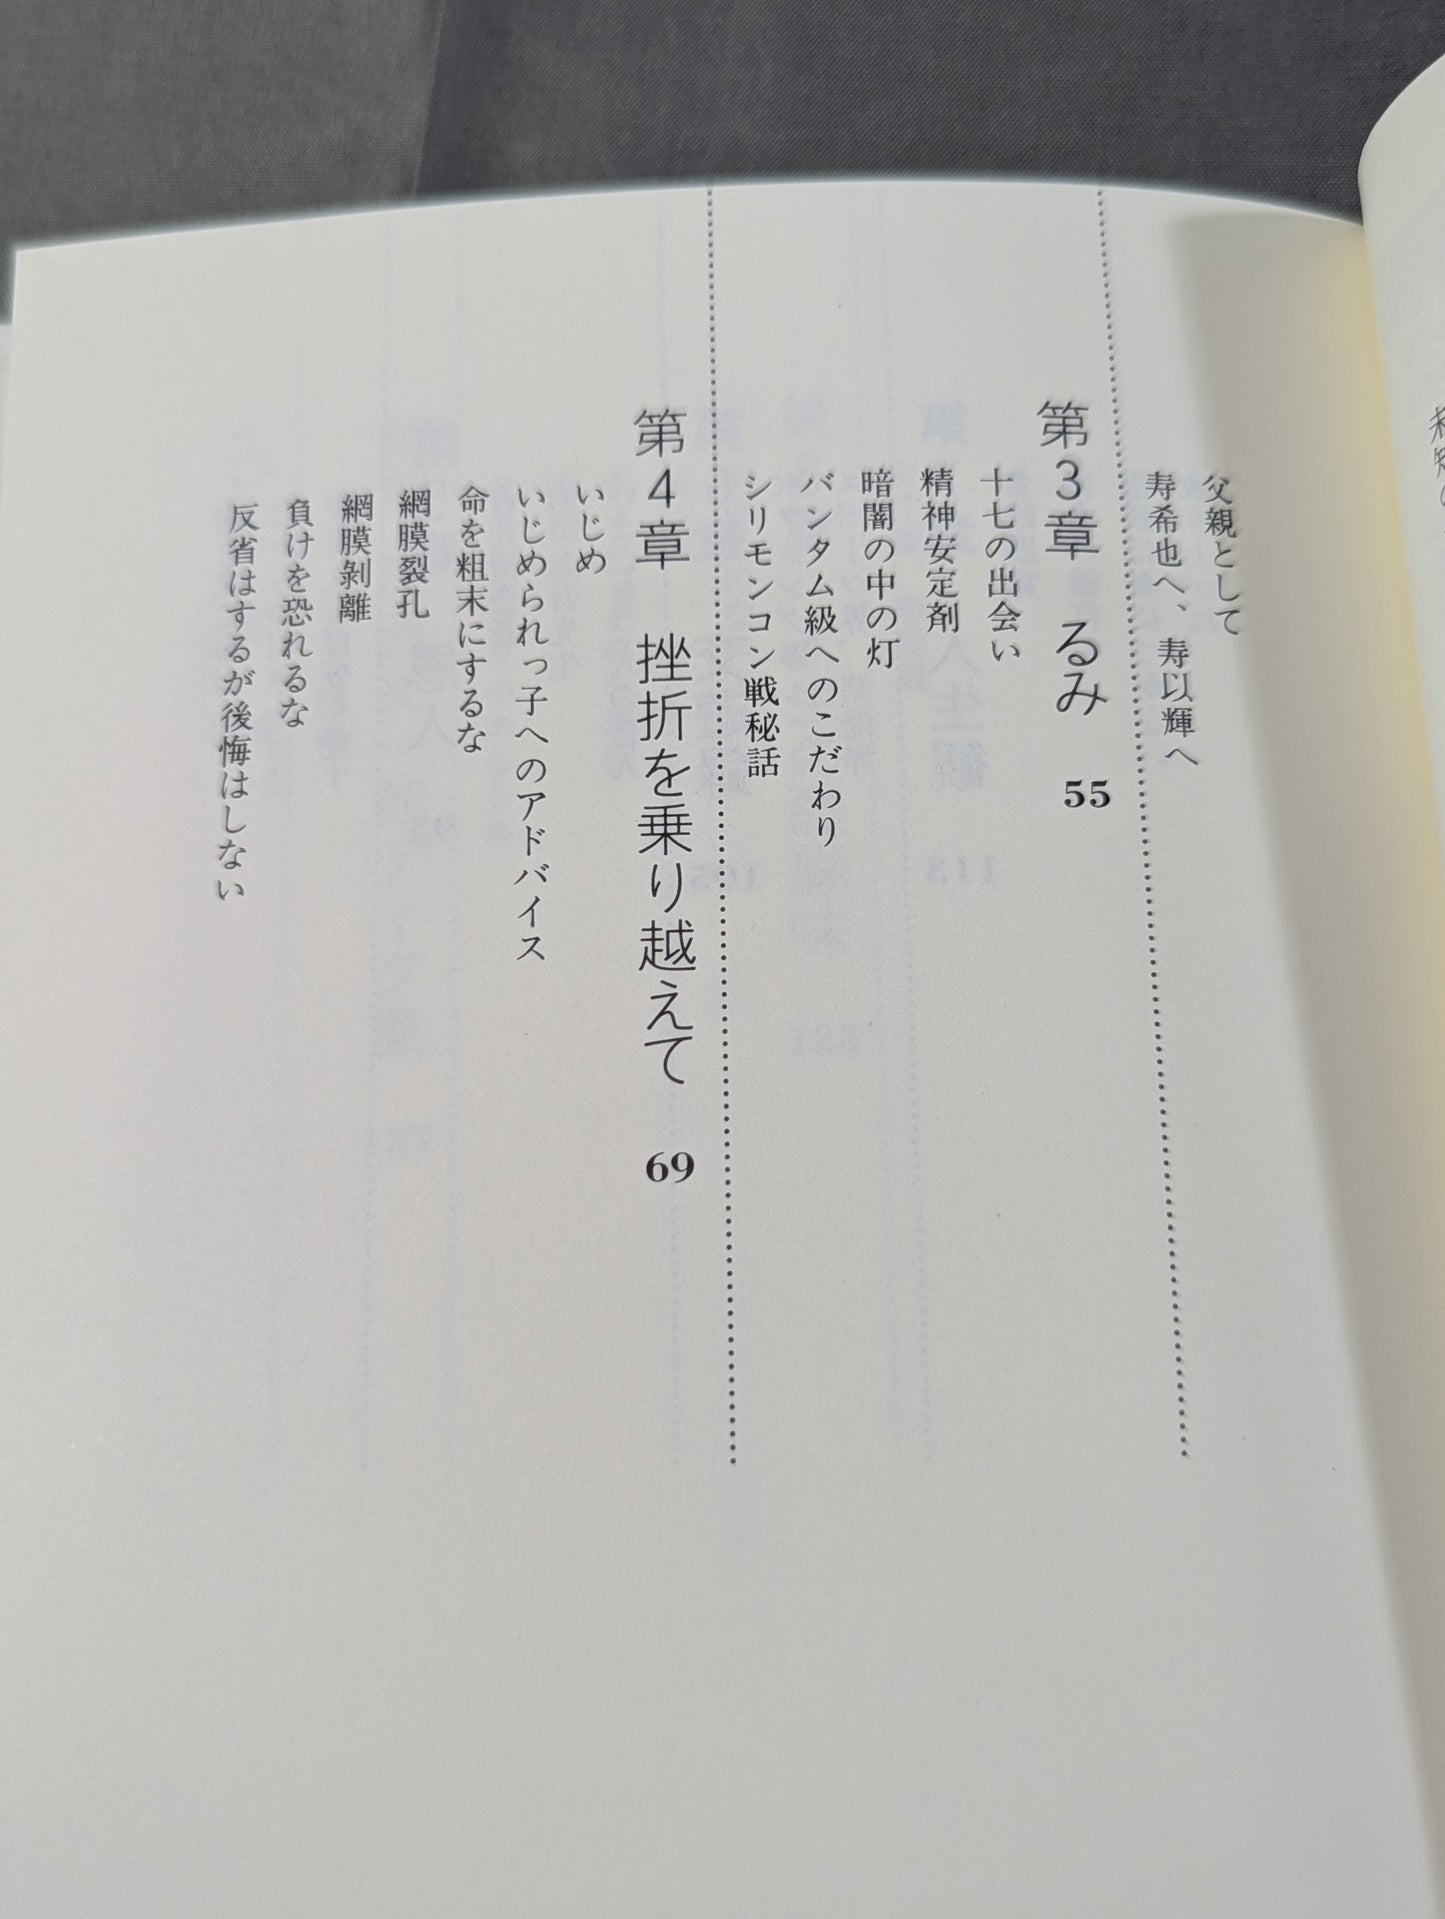 父親として
寿希也へ、寿以輝へ
第3章 るみ 55
十七の出会い
精神安定剤
暗闇の中の灯
バンタム級へのこだわり
シリモンコン戦秘話
第4章 挫折を乗り越えて 69
いじめ
いじめられっ子へのアドバイス
命を粗末にするな
網膜裂孔
網膜剝離
負けを恐れるな
反省はするが後悔はしない